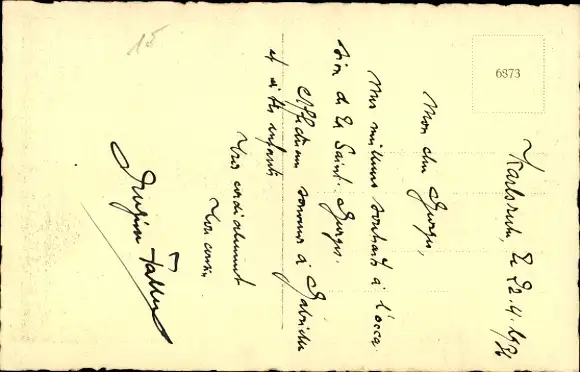 Karlsruhe, le 22.4.1936
Mon cher Georges,
Mes meilleurs souhaits à l'occa-
sion de la Saint-Georges.
Affectueux souvenir à Gabrielle
et à tes enfants
Très cordialement
Ton cousin
6873
15